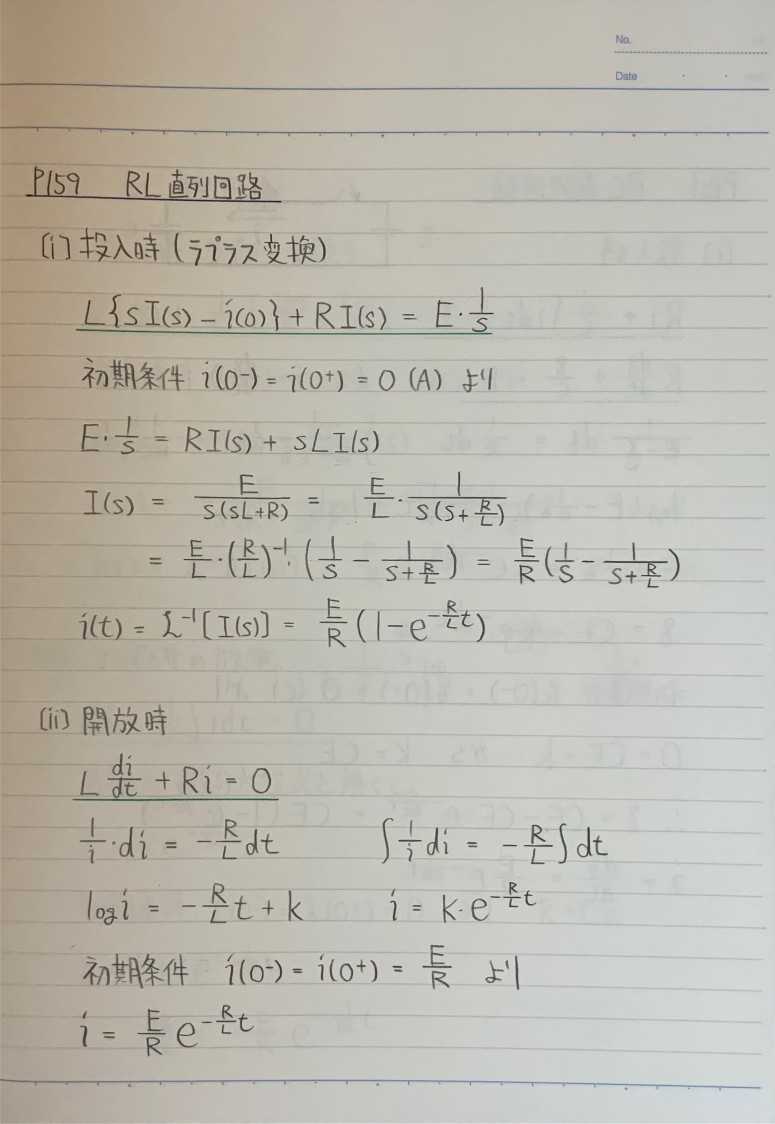 No.
Date
P159 RL直列回路
(i) 投入時 (ラプラス変換)
L{sI(s) - i(0)} + RI(s) = E・1/s
初期条件 i(0-) = i(0+) = 0 (A) より
E・1/s = RI(s) + sLI(s)
I(s) = E/s(sL+R) = E/L・1/s(s+R/L)
= E/L・(R/L)^-1・(1/s - 1/s+R/L) = E/R(1/s - 1/s+R/L)
i(t) = ℒ^-1[I(s)] = E/R(1-e^-R/Lt)
(ii) 開放時
L di/dt + Ri = 0
1/i・di = -R/L dt ∫1/i di = -R/L∫dt
log i = -R/L t + k i = k・e^-R/Lt
初期条件 i(0-) = i(0+) = E/R より
i = E/R e^-R/Lt